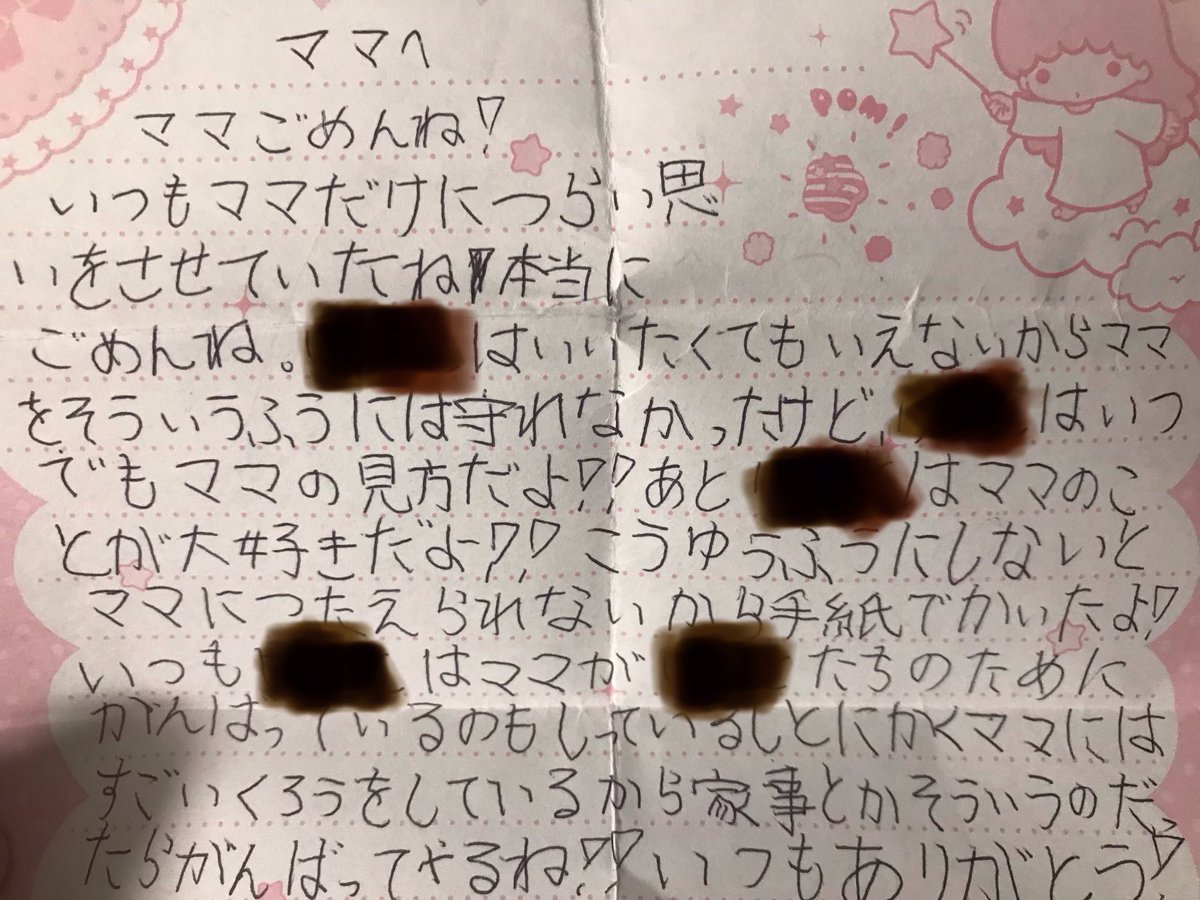 ママへ
POM!
ママごめんね!
いつもママだけにつらい思
いをさせていたね!本当に
ごめんね。はいいたくてもいえないからママ
をそういうふうには守れなかったけど、はいつ
でもママの見方だよ!!あとはママのこ
とが大好きだよ!!こうゆうふうにしないと
ママにつたえられないから手紙でかいたよ!
いつもはママがたちのために
がんばっているのもしっているしとにかくママには
すごいくろうをしているから家事とかそういうのだ
たらがんばってやるね!!いつもありがとう!